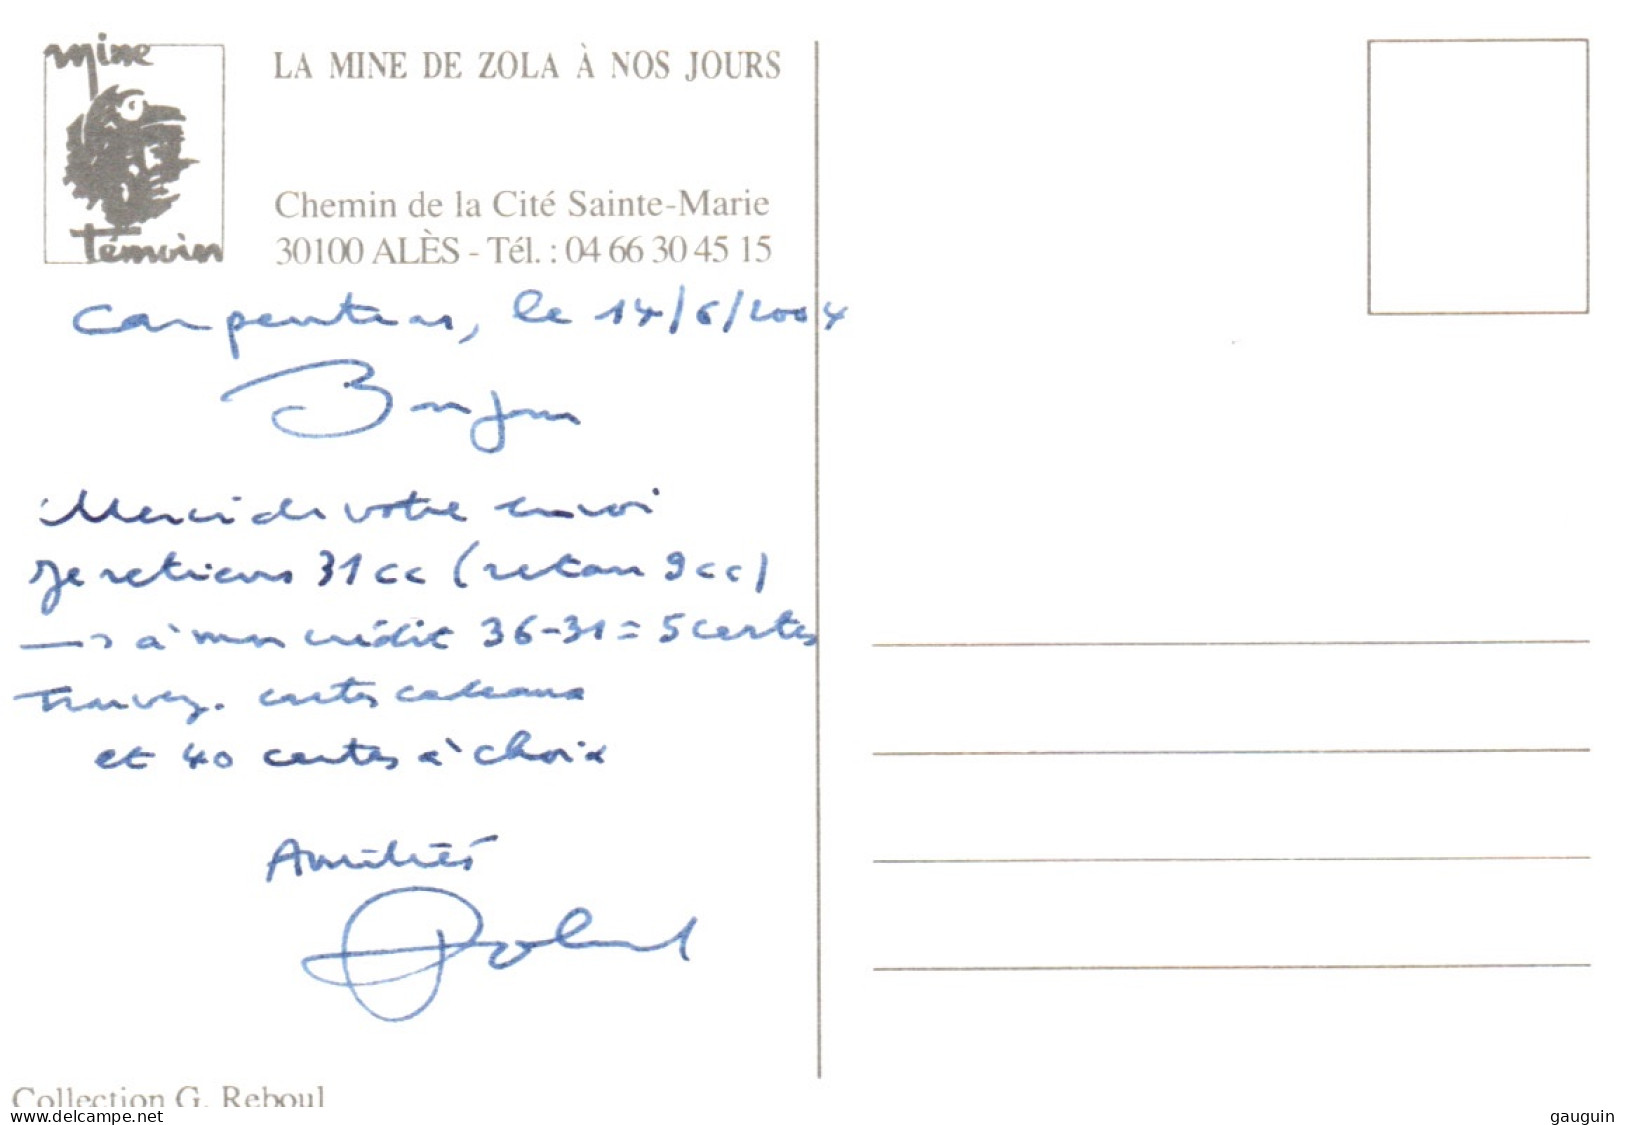 mine
témoin
LA MINE DE ZOLA À NOS JOURS
Chemin de la Cité Sainte-Marie
30100 ALÈS - Tél. : 04 66 30 45 15
Carpentras, le 14/6/2004
Bonjour
Merci de votre envoi
Je retiens 31 cc (retour 9 cc)
→ à mon crédit 36-31 = 5 cartes
Trouvez. cartes cadeaux
et 40 cartes à choix
Amitiés
Collection G. Reboul
delcampe.net
gauguin